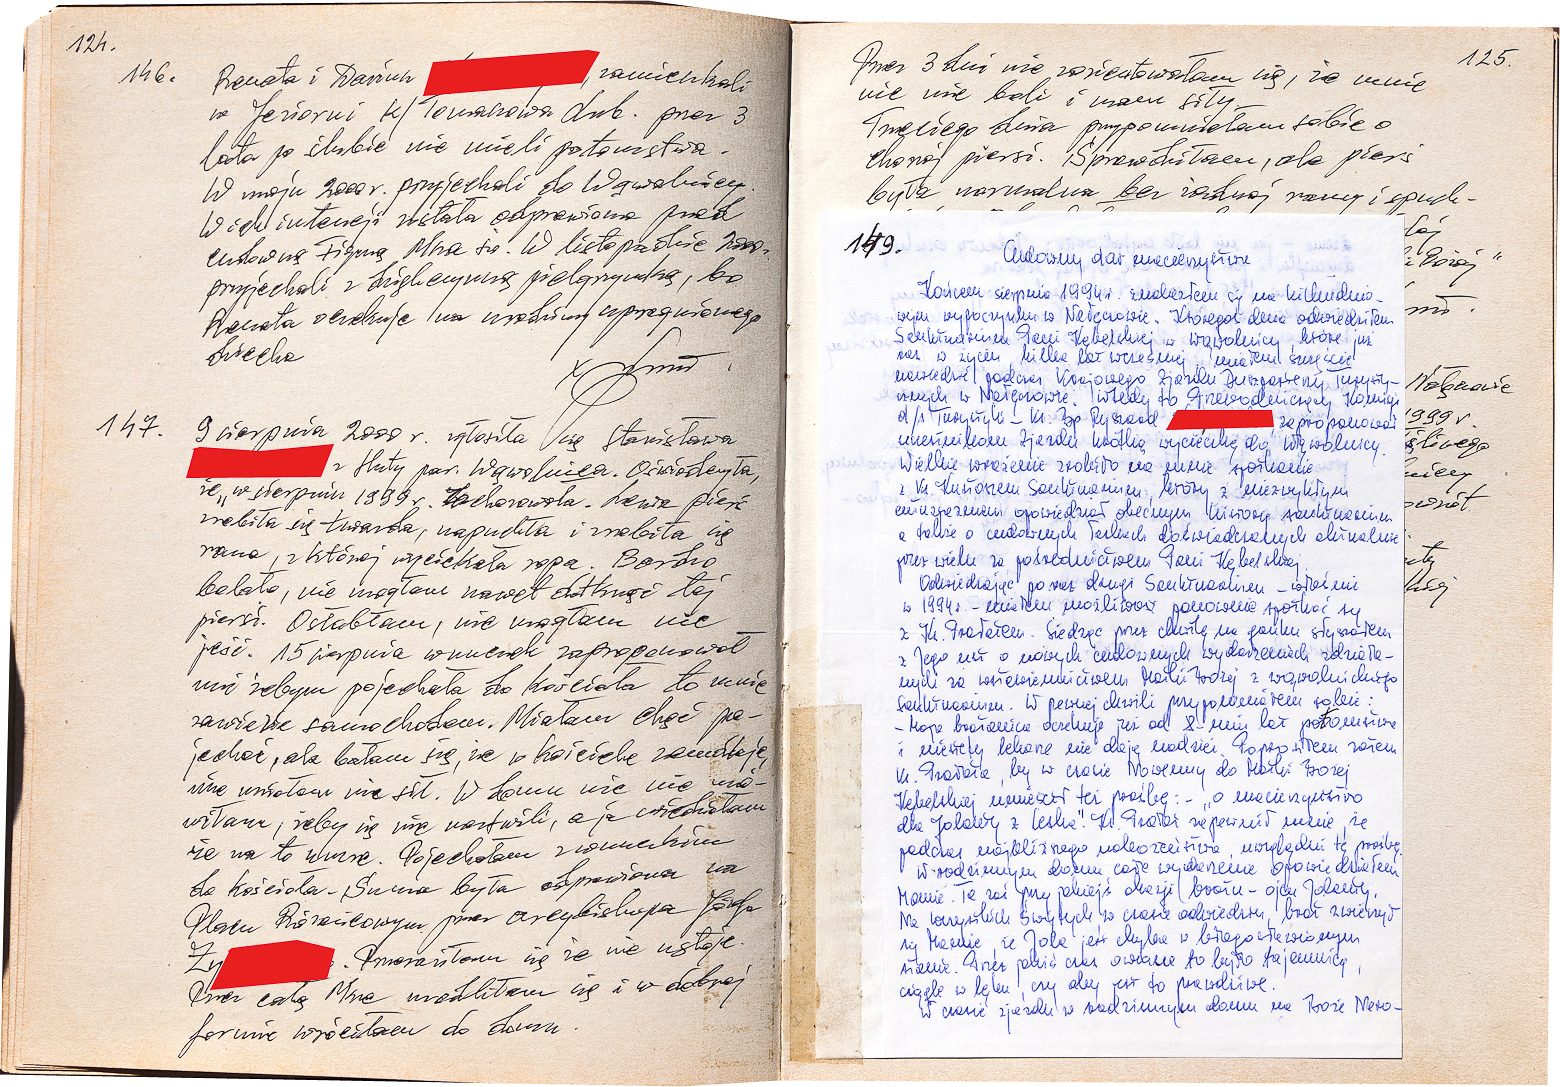 124.
146. Renata i Dariusz , zamieszkali
w Jeziorni k/Tomaszowa Lub. przez 3
lata po ślubie nie mieli potomstwa.
W maju 2000 r. przyjechali do Wąwolnicy.
W ich intencji została odprawiona przed
cudowną Figurą Msza św. W listopadzie 2000 r.
przyjechali z dziękczynną pielgrzymką, bo
Renata oczekuje na urodziny upragnionego
dziecka
147. 9 sierpnia 2000 r. zgłosiła się Stanisława
z par. Wąwolnica. Oświadczyła,
że „w sierpniu 1999 r. zachorowała. Lewa pierś
zrobiła się twarda, napuchła i zrobiła się
rana, z której wyciekała ropa. Bardzo
bolało, nie mogłam nawet dotknąć tej
piersi. Osłabłam, nie mogłam nic
jeść. 15 sierpnia wnuczek zaproponował
mi żebym pojechała do kościoła to mnie
zawiezie samochodem. Miałam chęć po-
jechać, ale bałam się, że w kościele zemdleję,
nie miałam nic sił. W domu nic nie mó-
wiłam, żeby się nie martwili, a ja wiedziałam
że na to umrę. Pojechałam z wnuczkiem
do kościoła. Suma była odprawiona na
Placu Różańcowym przez arcybiskupa Józefa
Ży . Przeraziłam się że nie ustoję.
Przez całą Mszę modliłam się i w dobrej
formie wróciłam do domu.
125.
Przez 3 dni nie zorientowałam się, że mnie
nic nie boli i mam siły.
Trzeciego dnia przypomniałam sobie o
chorej piersi. Sprawdziłam, ale pierś
była normalna bez żadnej rany i opuch-
149.
Cudowny dar macierzyństwa
Końcem sierpnia 1994 r. znalazłem się na kilkudnio-
wym wypoczynku w Nałęczowie. Któregoś dnia odwiedziłem
Sanktuarium Pani Kębelskiej w Wąwolnicy które już
raz w życiu, kilka lat wcześniej, miałem szczęście
nawiedzić podczas Krajowego Zjazdu Duszpasterzy Turysty-
cznych w Nałęczowie. Wtedy to Przewodniczący Komisji
d/s Turystyki – Ks. Bp Ryszard zaproponował
uczestnikom zjazdu krótką wycieczkę do Wąwolnicy.
Wielkie wrażenie zrobiło na mnie spotkanie
z Ks. Kustoszem Sanktuarium, który z niezwykłym
opowiedział obecnym historię sanktuarium
a także o cudownych łaskach doświadczanych aktualnie
przez wielu za pośrednictwem Pani Kębelskiej.
Odwiedzając po raz drugi Sanktuarium – właśnie
w 1994 r. – miałem możliwość ponownie spotkać się
z Ks. Prałatem. Siedząc przez chwilę na ganku słyszałem
z Jego ust o nowych cudownych wydarzeniach zdziała-
nych za wstawiennictwem Matki Bożej z wąwolnickiego
Sanktuarium. W pewnej chwili przypomniałem sobie:
– Moja bratanica oczekuje już od 8-miu lat potomstwa
i niestety lekarze nie dają nadziei. Poprosiłem zatem
Ks. Prałata, by w czasie Nowenny do Matki Bożej
Kębelskiej umieścił też prośbę: – „O macierzyństwo
dla Jolanty z Leska”. Ks. Prałat zapewnił mnie, że
podczas najbliższego nabożeństwa, uwzględni tę prośbę.
W rodzinnym domu całe wydarzenie opowiedziałem
Mamie. Ta zaś przy jakiejś okazji bratu – ojcu Jolanty.
Na Wszystkich Świętych w czasie odwiedzin, brat zwierzył
się Mamie, że Jola jest chyba w błogosławionym
stanie. Przez jakiś czas owiane to było tajemnicą,
ciągle w lęku, czy aby jest to prawdziwe.
W czasie zjazdu w rodzinnym domu na Boże Naro-